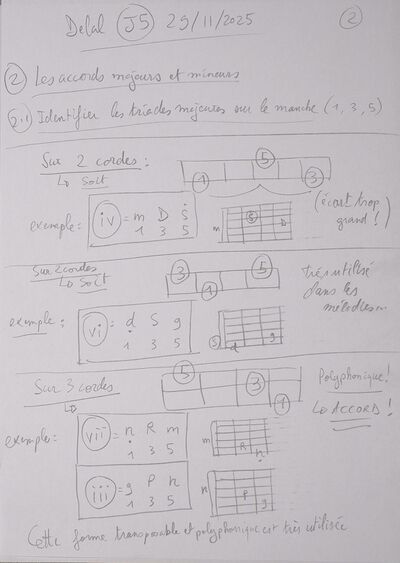 Delal J5 29/11/2025 2
2 Les accords majeurs et mineurs
2.1 Identifier les triades majeures sur le manche (1, 3, 5)
Sur 2 cordes :
↳ soit
1 5 3
exemple : iv = m D Ṡ
1 3 5
m S D
(écart trop grand !)
Sur 2 cordes
↳ soit
3 1 5
très utilisé
dans les
mélodies...
exemple : vi = d S g
1 3 5
S d g
Sur 3 cordes
↳
5 3 1
Polyphonique !
↳ ACCORD !
exemple : vii = n R m
1 3 5
m R n
iii = g P n
1 3 5
n P g
Cette forme transposable et polyphonique est très utilisée